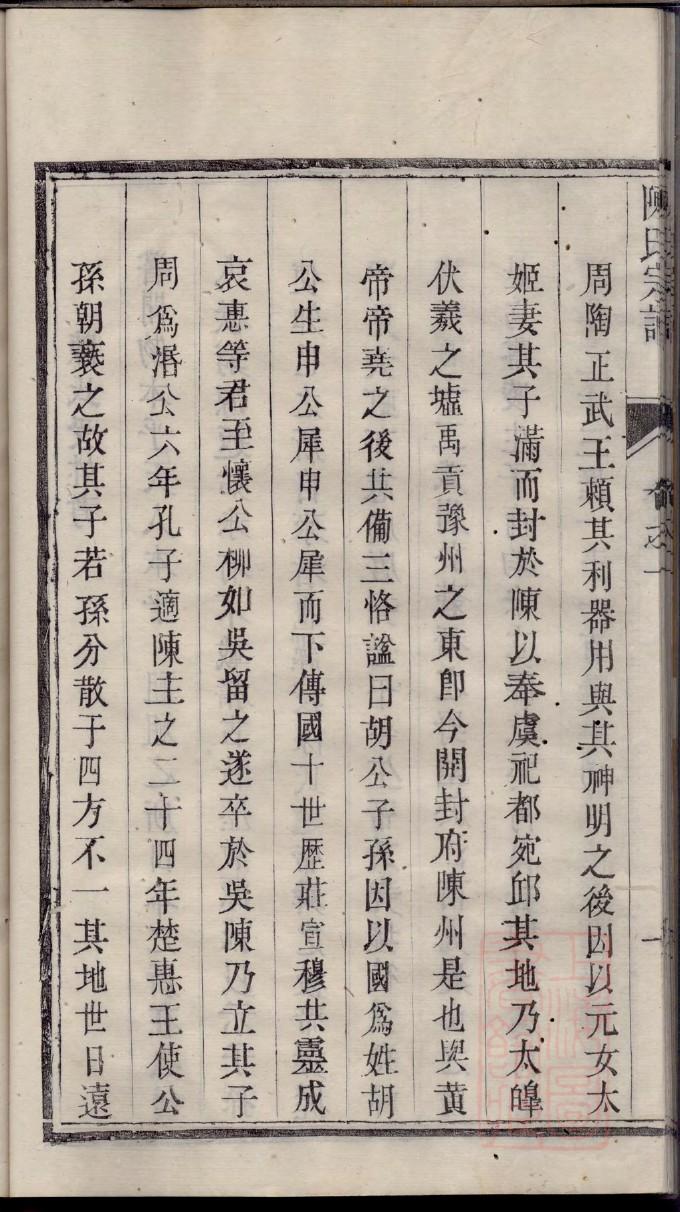 陳氏宗譜
卷之一
周陶正武王賴其利器用與其神明之後因以元女太
姬妻其子滿而封於陳以奉虞祀都宛邱其地乃太皥
伏羲之墟禹貢豫州之東卽今開封府陳州是也與黃
帝帝堯之後共備三恪諡曰胡公子孫因以國爲姓胡
公生申公犀申公犀而下傳國十世歷莊宣穆共靈成
哀惠等君至懷公柳如吳留之遂卒於吳陳乃立其子
周爲湣公六年孔子適陳主之二十四年楚惠王使公
孫朝襲之故其子若孫分散于四方不一其地世日遠